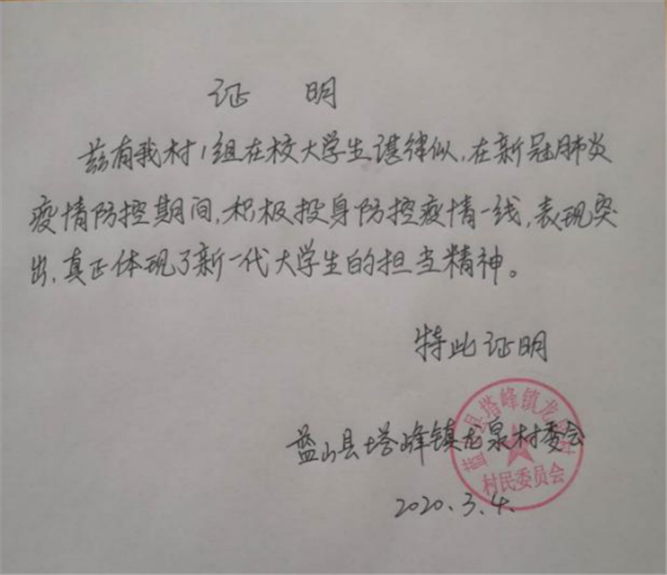 证 明
兹有我村1组在校大学生谌律似,在新冠肺炎
疫情防控期间,积极投身防控疫情一线,表现突
出,真正体现了新一代大学生的担当精神。
特此证明
蓝山县塔峰镇龙泉村委会
2020.3.4.
蓝山县塔峰镇龙泉村
村民委员会